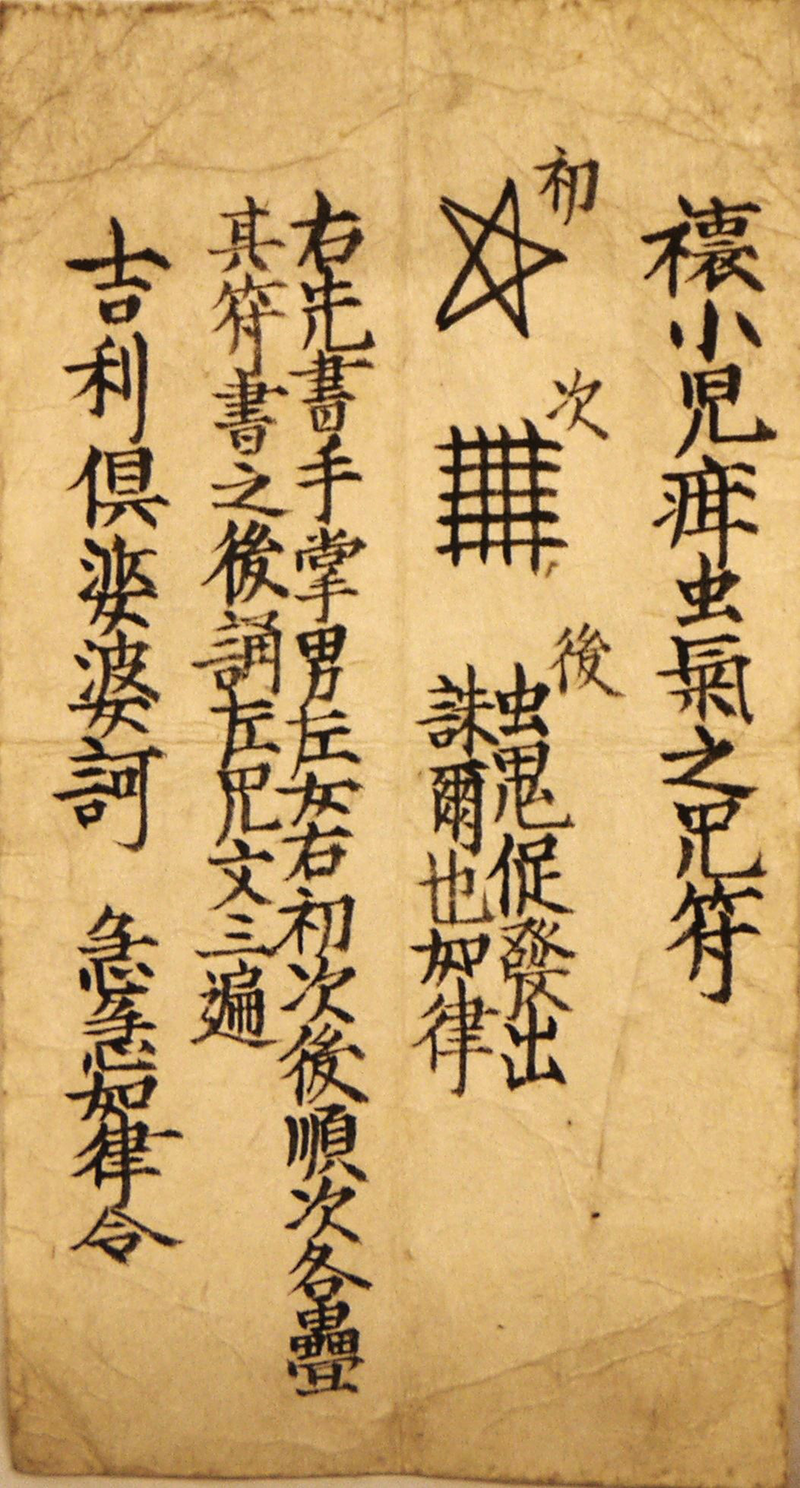 禳小児疳虫氣之咒符
初
次
後
虫鬼促發出
誅爾也如律
右先書手掌男左女右初次後順次各疊
其符書之後誦左咒文三遍
吉利倶娑婆訶 急急如律令